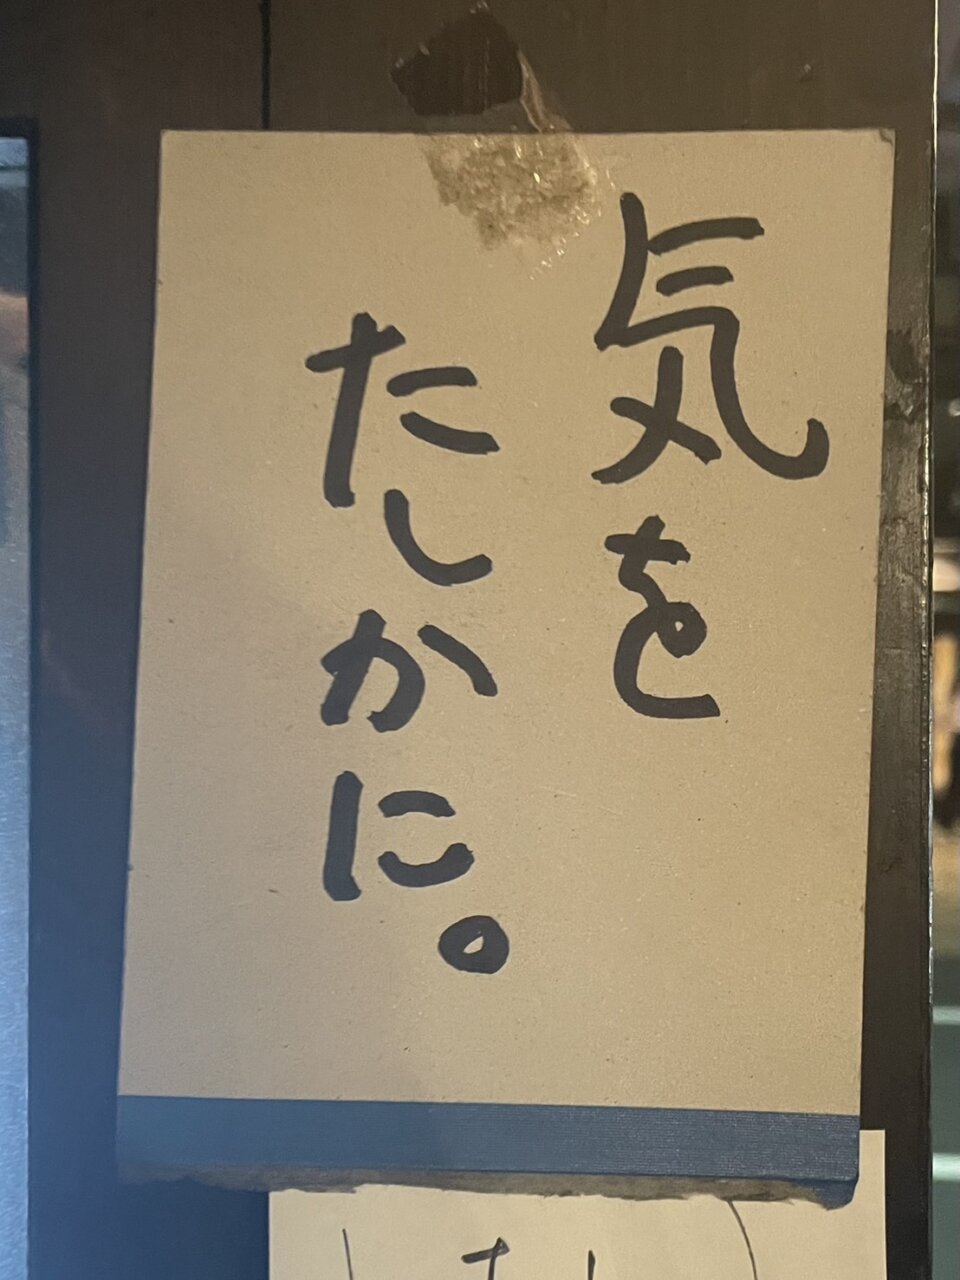 気を
たしかに。